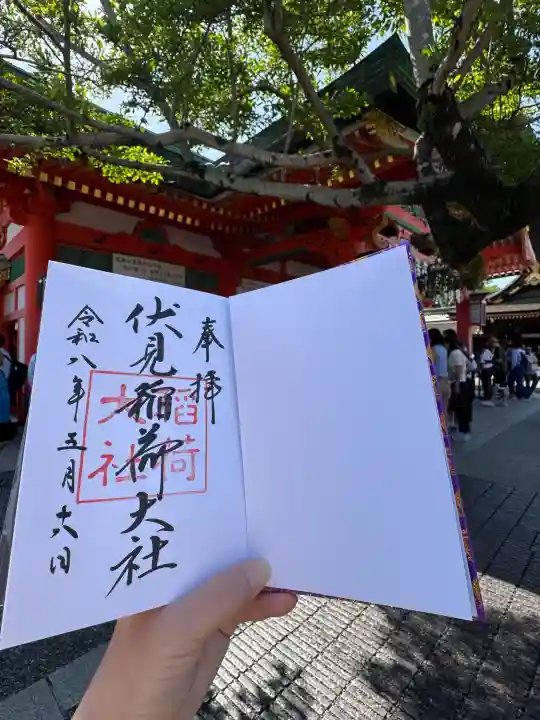 奉拝
伏見稲荷大社
稲荷
大社
令和八年五月十六日